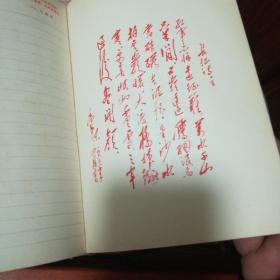 红军不怕远征难 万水千山
只等闲 五岭逶迤腾细浪乌
蒙磅礴走泥丸 金沙水
拍云崖暖 大渡桥横铁索
寒 更喜岷山千里雪 三军
过后尽开颜